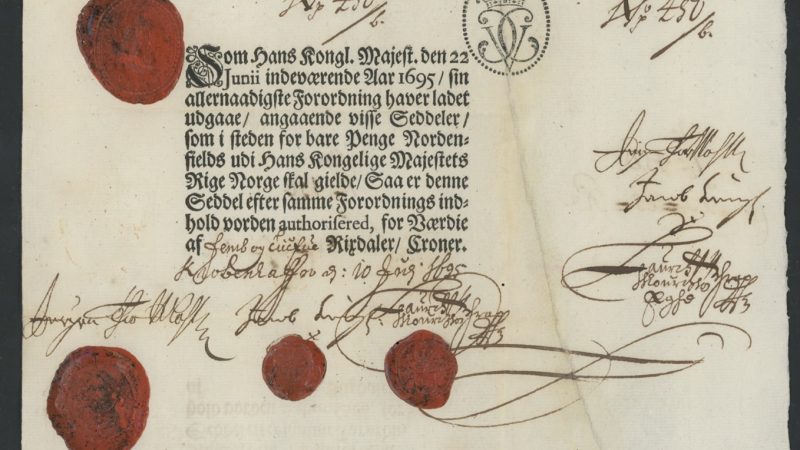 No 450
No 450
Som Hans Kongl. Majest. den 22
Junii indeværende Aar 1695/ sin
allernaadigste Forordning haver ladet
udgaae/ angaaende visse Seddeler/
som i steden for bare Penge Norden-
fields udi Hans Kongelige Majestets
Rige Norge skal gielde/ Saa er denne
Seddel efter samme Forordnings ind-
hold vorden authorisered, for Værdie
af Femb og tiufue Rixdaler/ Croner.
d: 10 1695
Jørgen Thor Møhlen Jacob